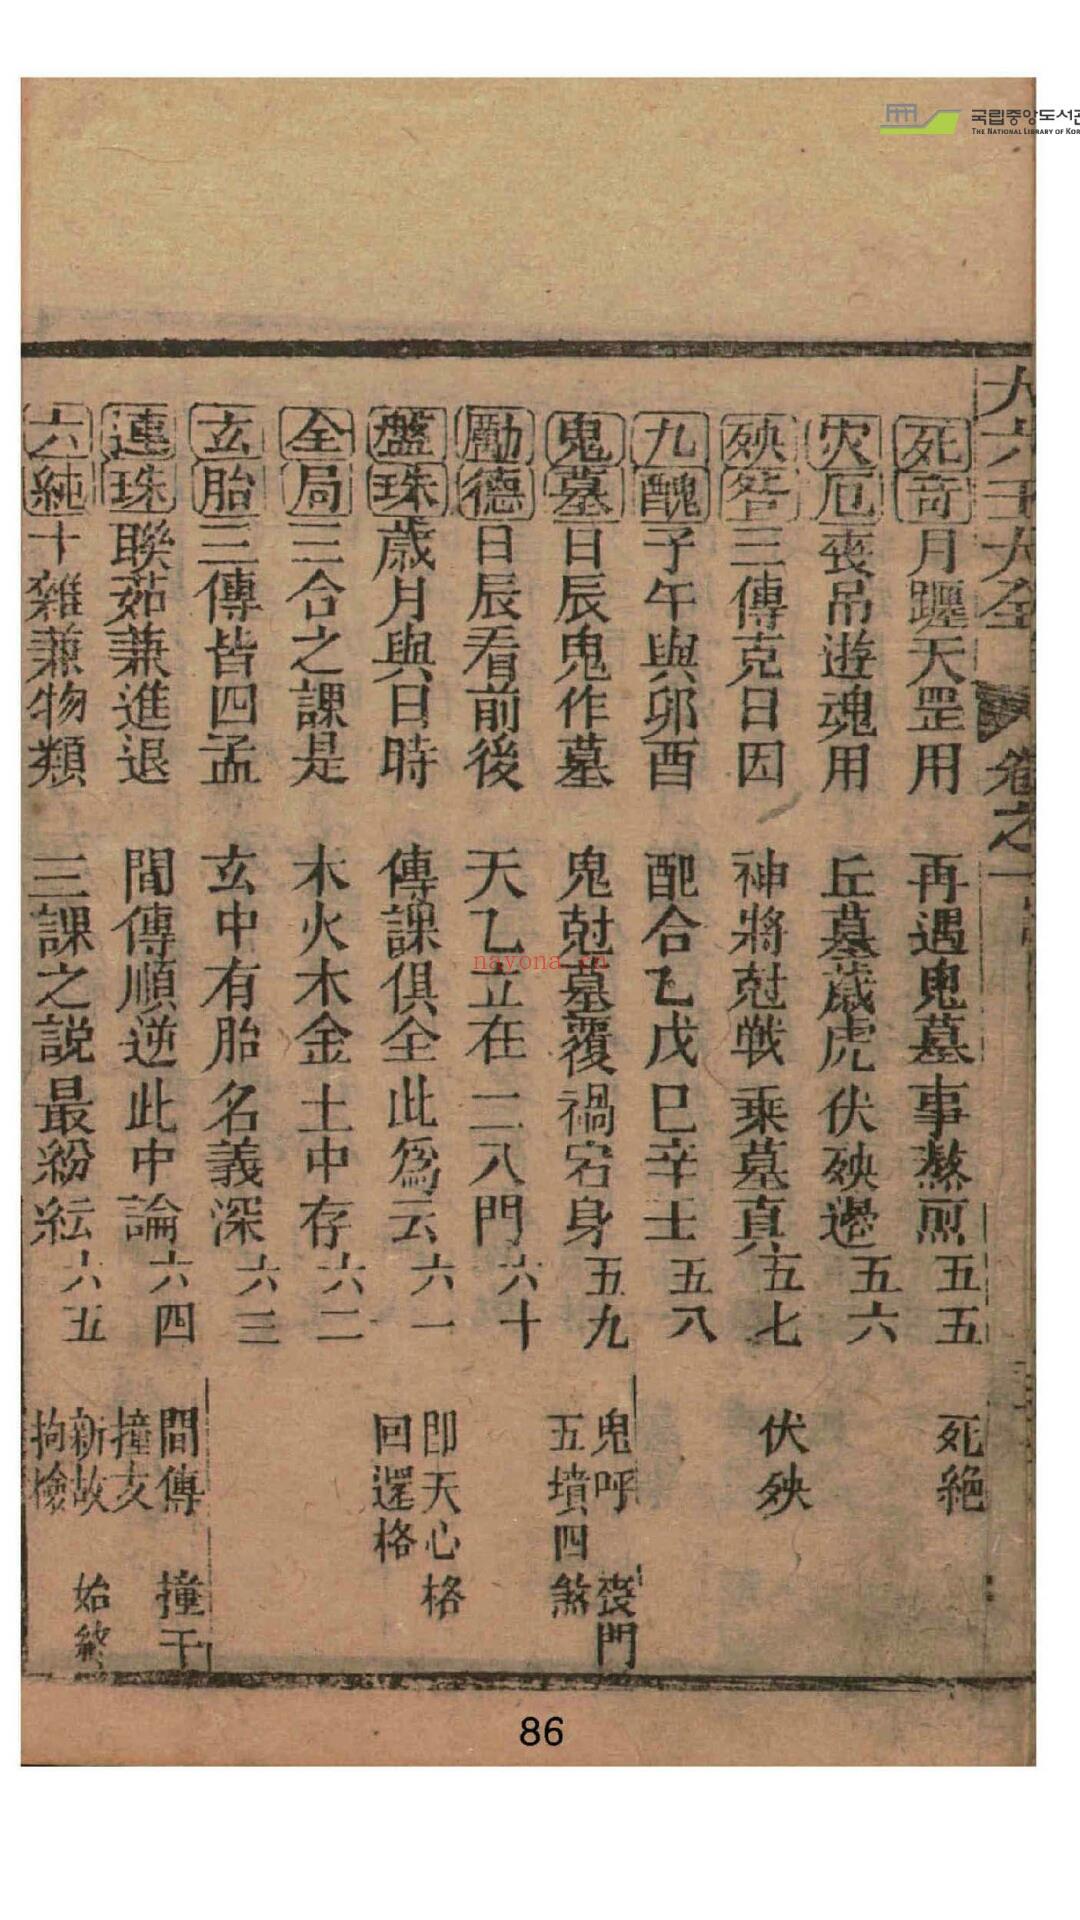 국립중앙도서관
THE NATIONAL LIBRARY OF KOR
大六壬大全 卷之一
死奇月躔天罡用 再遇鬼墓事熬煎 五五 死絕
災厄喪吊遊魂用 丘墓歲虎伏殃邊 五六
殃咎三傳克日因 神將尅戰乘墓真 五七 伏殃
九醜子午與卯酉 配合乙戊巳辛士 五八
鬼墓日辰鬼作墓 鬼尅墓覆禍宕身 五九 鬼呼 喪門
五墳四煞
勵德日辰看前後 天乙立在二八門 六十
盤珠歲月與日時 傳課俱全此爲云 六一 即天心格
回還格
全局三合之課是 木火木金土中存 六二
玄胎三傳皆四孟 玄中有胎名義深 六三
連珠聯茹兼進退 間傳順逆此中論 六四 間傳 撞干
撞支
六純十雜兼物類 三課之説最紛紜 六五 新故 始終
拘檢
nayona.cn
86